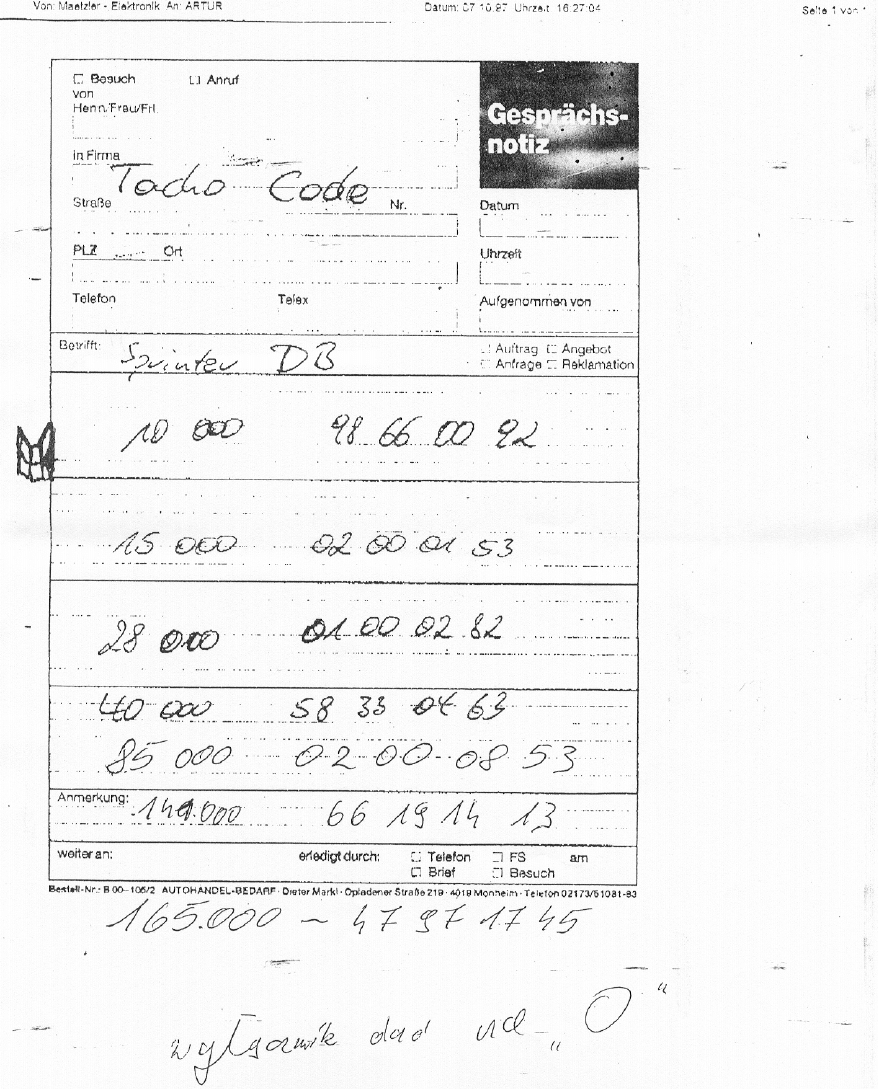 Von: Maetzler - Elektronik An: ARTUR Datum: 07.10.97 Uhrzeit 16:27:04 Seite 1 von 1
☐ Besuch ☐ Anruf
von
Herrn/Frau/Frl.
Gesprächs-
notiz
in Firma
Tacho Code
Straße Nr. Datum
PLZ Ort Uhrzeit
Telefon Telex Aufgenommen von
Betrifft: Sprinter DB ☐ Auftrag ☐ Angebot
☐ Anfrage ☐ Reklamation
10 000 98 66 00 92
15 000 02 00 01 53
28 000 01 00 02 82
40 000 58 33 04 63
85 000 02-00-08 53
Anmerkung: 149.000 66 19 14 13
weiter an: erledigt durch: ☐ Telefon ☐ FS am
☐ Brief ☐ Besuch
Bestell-Nr.: B 00-105/2 AUTOHANDEL-BEDARF · Dieter Markl · Opladener Straße 219 · 4019 Monheim · Telefon 02173/51081-83
165.000 ~ 47 97 17 45
dad na „O“